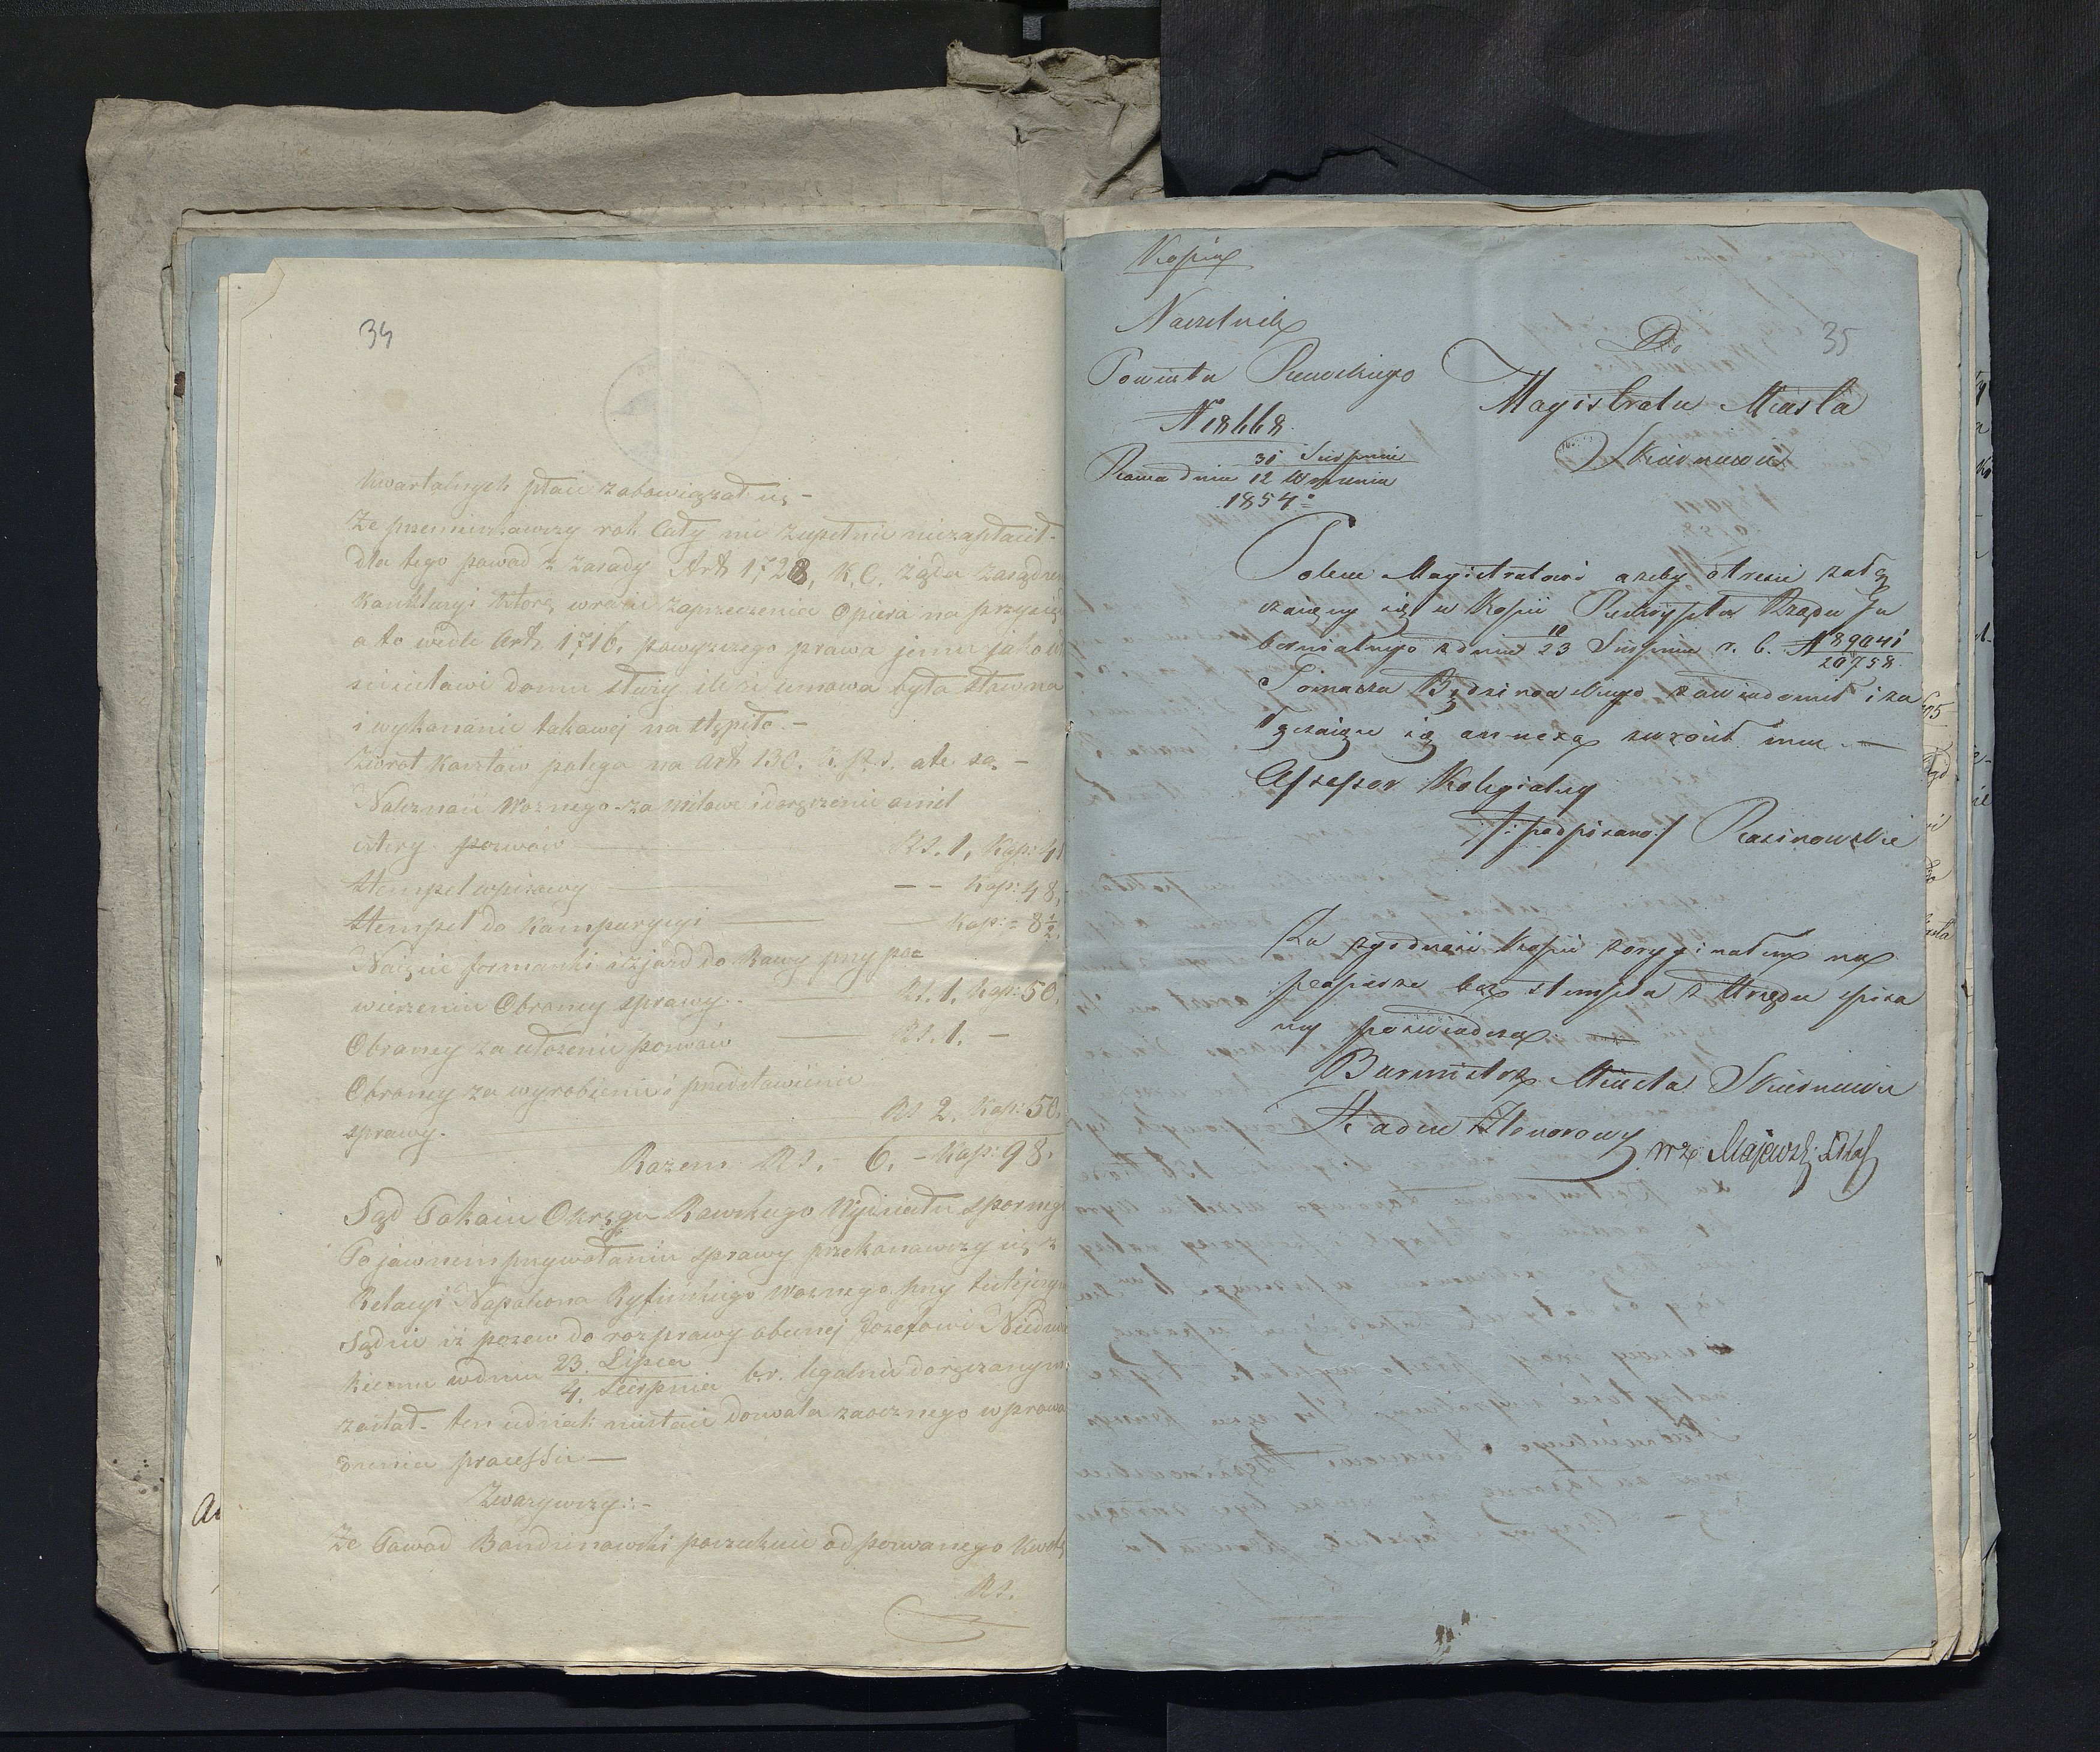 34
kwartalnych płacić zobowiązał się –
Że przemieszkawszy rok Cały nic zupełnie niezapłacił –
dla tego powód z zasady Art 1728, K. C. żąda zasądzen
konkluzyi którą w razie zaprzeczenia Opiera na przysię
a to wedle Art. 1716. powyższego prawa jemu jako wł
ścicielowi domu służy ileże umowa była słowna
i wykonanie takowej nastąpiło. –
Zwrot kosztów polega na Art 130. K. P. S. a te są. –
Należność Woznego za milowe i doręczenie
cztery pozwów Rs. 1, Kop: 4
Stempel wpisowy – – Kop: 48,
Stempel do komparycyi – Kop: = 8 1/2.
Najęcie formanki i zjazd do Rawy przy po=
wierzeniu Obrońcy sprawy.. Rs. 1. Kop: 50.
Obrońcy za ułożenie pozwów Rs. 1. –
Obrońcy za wyrobienie i przedstawienie
sprawy. Rs 2. Kop: 50.
Razem Rs. – 6. – Kop: 98.
Sąd Pokoiu Okręgu Rawskiego Wydziału Sporneg
Po jawnem przywołaniu sprawy przekonawszy się z
Relacyi Napoleona Woznego przy tutejszym
Sądzie iż pozew do rozprawy obecnej Jozefowi
kiemu w dniu 23. Lipca / 4. Sierpnia b. r. legalnie doręczonym
został – ten udziel: niestaie dozwala zaocznego wprowa
dzenia processu –
Zważywszy: –
Że Powód Bondzinowski poszukuie od pozwanego kwoty
Rs.
Kopia
Naczelnik
Powiatu Rawskiego
N 18668.
Rawa dnia 31 Sierpnia / 12 Września
1854.
35
Do
Magistratu Miasta
Skierniewic
Polecę Magistratowi azeby o treści załą
czaiącego się w Kopii Reskryptu Rządu Gu
bernialnego z dnia 11/23 Sierpnia r. b. N 89041/20758
Tomasza Będzinowskiego zawiadomił i za
łączaiące się annexa zwrócił mu. –
Assessor Kolegialny
/: podpisano :/ Rasinowski
Za zgodność Kopii z oryginałem na
papierze bez stempla z Urzędu spisa
ny poświadcza
Burmistrz Miasta Skierniewic
Radca Honorowy
wz. Majewski